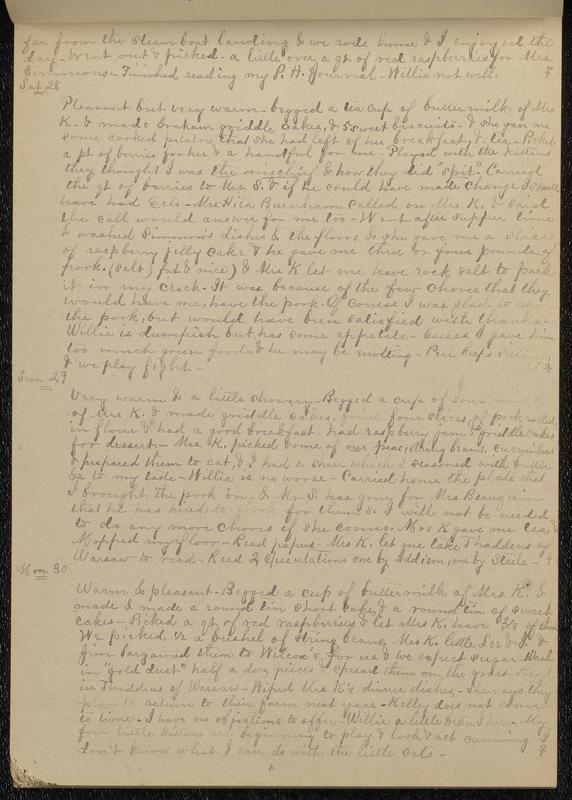 far from the steam boat landing & we rode home & I enjoyed the
day - Went out & picked - a little over a qt of red raspberries for Mrs
Simmons - Finished reading my P. H. Journal - Willie not well.
Sat 28
Pleasant but very warm - begged a tea cup of buttermilk of Mrs
K. & made Graham griddle cakes, & 5 sweet biscuits - & she gave me
some cooked potatoes that she had left of her breakfast, & tea - Picked
a pt of berries for her & a handful for me - Played with the kittens
they thought I was the mischief & how they did "spit". Carried
the qt of berries to Mrs. S. & if he could have made change I should
have had - Mrs Hila Burnham called on Mrs K. & said
the call would answer for me too - Went after supper time
& washed Simmon's dishes & the floor & she gave me a
of raspberry jelly cake & he gave me three or four pounds of
pork. (salt, fat & nice) & Mrs K let me have rock salt to pack
it in my crock. It was because of the few chores that they
would have me, have the pork. Of course I was glad to
the pork, but would have been satisfied with thanks -
Willie is dumpish but has some appetite - Guess I gave him
too much green food & he may be molting - keeps
& we play fight -
Sun 29
Very warm & a little showery - Begged a cup of sour milk
of Mrs K. & made griddle cakes, fried four slices of pork rolled
in flour & had a good breakfast - had raspberry jam & griddle cakes
for dessert - Mrs K. picked some of our peas, string beans, cucumbers
& prepared them to eat, & I had a share which I seasoned with butter
&c to my taste - Willie is no worse - Carried home the plate that
I brought the pork on - & Mr S. has gone for Mrs
that he has hired to work for them so I will not be needed
to do any more chores if she comes. Mrs K gave me tea &
Mopped my floor - Read papers - Mrs K. let me take Thaddeus of
Warsaw to read - Read 2 Speculations one by Addison, one by Steele -
Mon 30
Warm & pleasant - Begged a cup of buttermilk of Mrs K. &
made a round tin short cake, & a round tin of sweet
cakes - Picked a qt of red raspberries & let Mrs K. have 2/3 of them
We picked 1/2 a bushel of string beans, Mrs K. little &
Jim them to Wilcox's for us & we expect sugar - Wash
in "gold dust" half a doz pieces & spread them on the grass - Read
in Thaddeus of Warsaw - Wiped Mrs K's dinner dishes - She says they
plan to return to their farm next year - Kelley does not come
to time - I have no objections to offer - Willie a little better - My
four little kittens are beginning to play & look & act cunning -
don't know what I can do with the little cats -